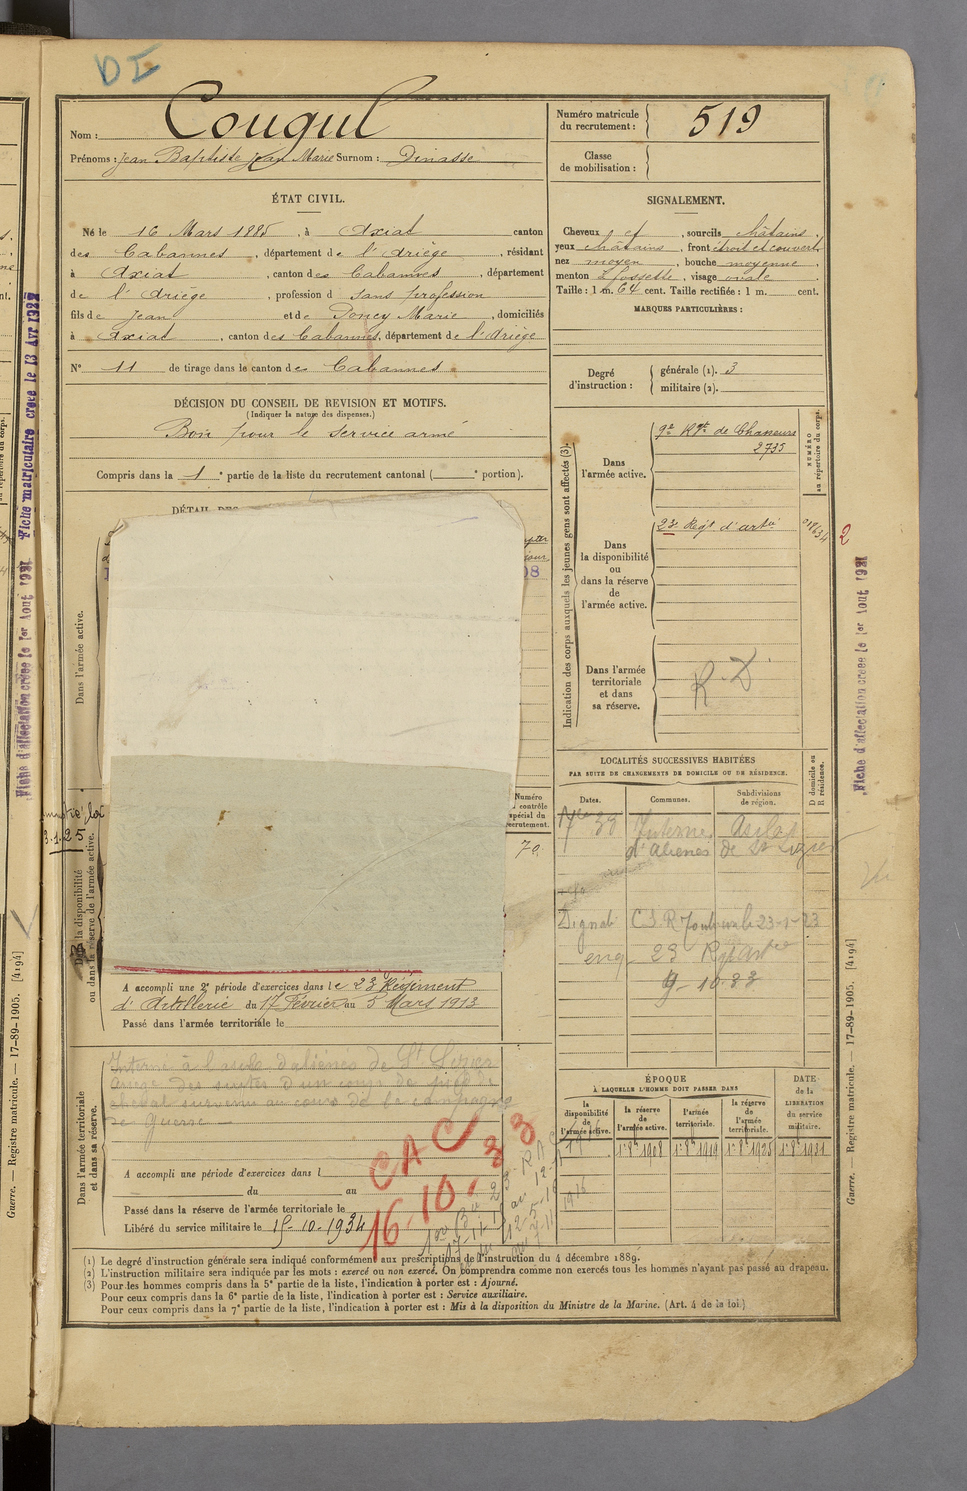 DI
Nom : Cougul
Prénoms : Jean Baptiste Jean Marie Surnom : Dinasse
Numéro matricule du recrutement : 519
Classe de mobilisation :
ÉTAT CIVIL.
Né le 16 Mars 1885, à Axiat canton
des Cabannes, département de l'Ariège, résidant
à Axiat, canton des Cabannes, département
de l'Ariège, profession d sans profession
fils de Jean et de Poncy Marie, domiciliés
à Axiat, canton des Cabannes, département de l'Ariège
N° 11 de tirage dans le canton des Cabannes
DÉCISION DU CONSEIL DE REVISION ET MOTIFS.
(Indiquer la nature des dispenses.)
Bon pour le service armé
Compris dans la 1e partie de la liste du recrutement cantonal ( e portion).
DÉTAIL DES
SIGNALEMENT.
Cheveux et, sourcils châtains,
yeux châtains, front étroit et couvert,
nez moyen, bouche moyenne
menton à fossette, visage ovale.
Taille : 1 m. 64 cent. Taille rectifiée : 1 m. cent.
MARQUES PARTICULIÈRES :
Degré d'instruction :
générale (1). 3
militaire (2).
Indication des corps auxquels les jeunes gens sont affectés (3).
NUMÉRO au répertoire du corps.
Dans l'armée active.
9e Rgt de Chasseurs
2735
Dans la disponibilité ou dans la réserve de l'armée active.
23e Régt d'artie
2
Dans l'armée territoriale et dans sa réserve.
R.D
LOCALITÉS SUCCESSIVES HABITÉES
PAR SUITE DE CHANGEMENTS DE DOMICILE OU DE RÉSIDENCE.
Dates. Communes. Subdivisions de région. D domicile ou R résidence.
Interné Asile
d'aliénés de St Lizier
C.S.R Toulouse le 23-1-23
23 R
9-10-33
Dans l'armée active.
Numéro contrôle spécial du recrutement.
70
la disponibilité ou dans la réserve de l'armée active.
A accompli une 2e période d'exercices dans le 23e Régiment
d'Artillerie du 17 Février au 5 Mars 1913
Passé dans l'armée territoriale le
Dans l'armée territoriale et dans sa réserve.
Interné à l'asile d'aliénés de St Lizier
Ariège des suites d'un coup de pied de
cheval survenu au cours de la campagne
de Guerre
CAC
16.10.33
A accompli une période d'exercices dans l
du au
Passé dans la réserve de l'armée territoriale le
Libéré du service militaire le 15-10-1934
ÉPOQUE
À LAQUELLE L'HOMME DOIT PASSER DANS
DATE de la LIBÉRATION du service militaire.
la disponibilité de l'armée active. la réserve de l'armée active. l'armée territoriale. la réserve de l'armée territoriale.
(1) Le degré d'instruction générale sera indiqué conformément aux prescriptions de l'instruction du 4 décembre 1889.
(2) L'instruction militaire sera indiquée par les mots : exercé ou non exercé. On comprendra comme non exercés tous les hommes n'ayant pas passé au drapeau.
(3) Pour les hommes compris dans la 5e partie de la liste, l'indication à porter est : Ajourné.
Pour ceux compris dans la 6e partie de la liste, l'indication à porter est : Service auxiliaire.
Pour ceux compris dans la 7e partie de la liste, l'indication à porter est : Mis à la disposition du Ministre de la Marine. (Art. 4 de la loi.)
Fiche matriculaire créée le 13 Avr 1927
Fiche d'affectation créée le 1er Aout 1921
Fiche d'affectation créée le 1er Aout 1921
Guerre. — Registre matricule. — 17-89-1905. [4194]
Guerre. — Registre matricule. — 17-89-1905. [4194]